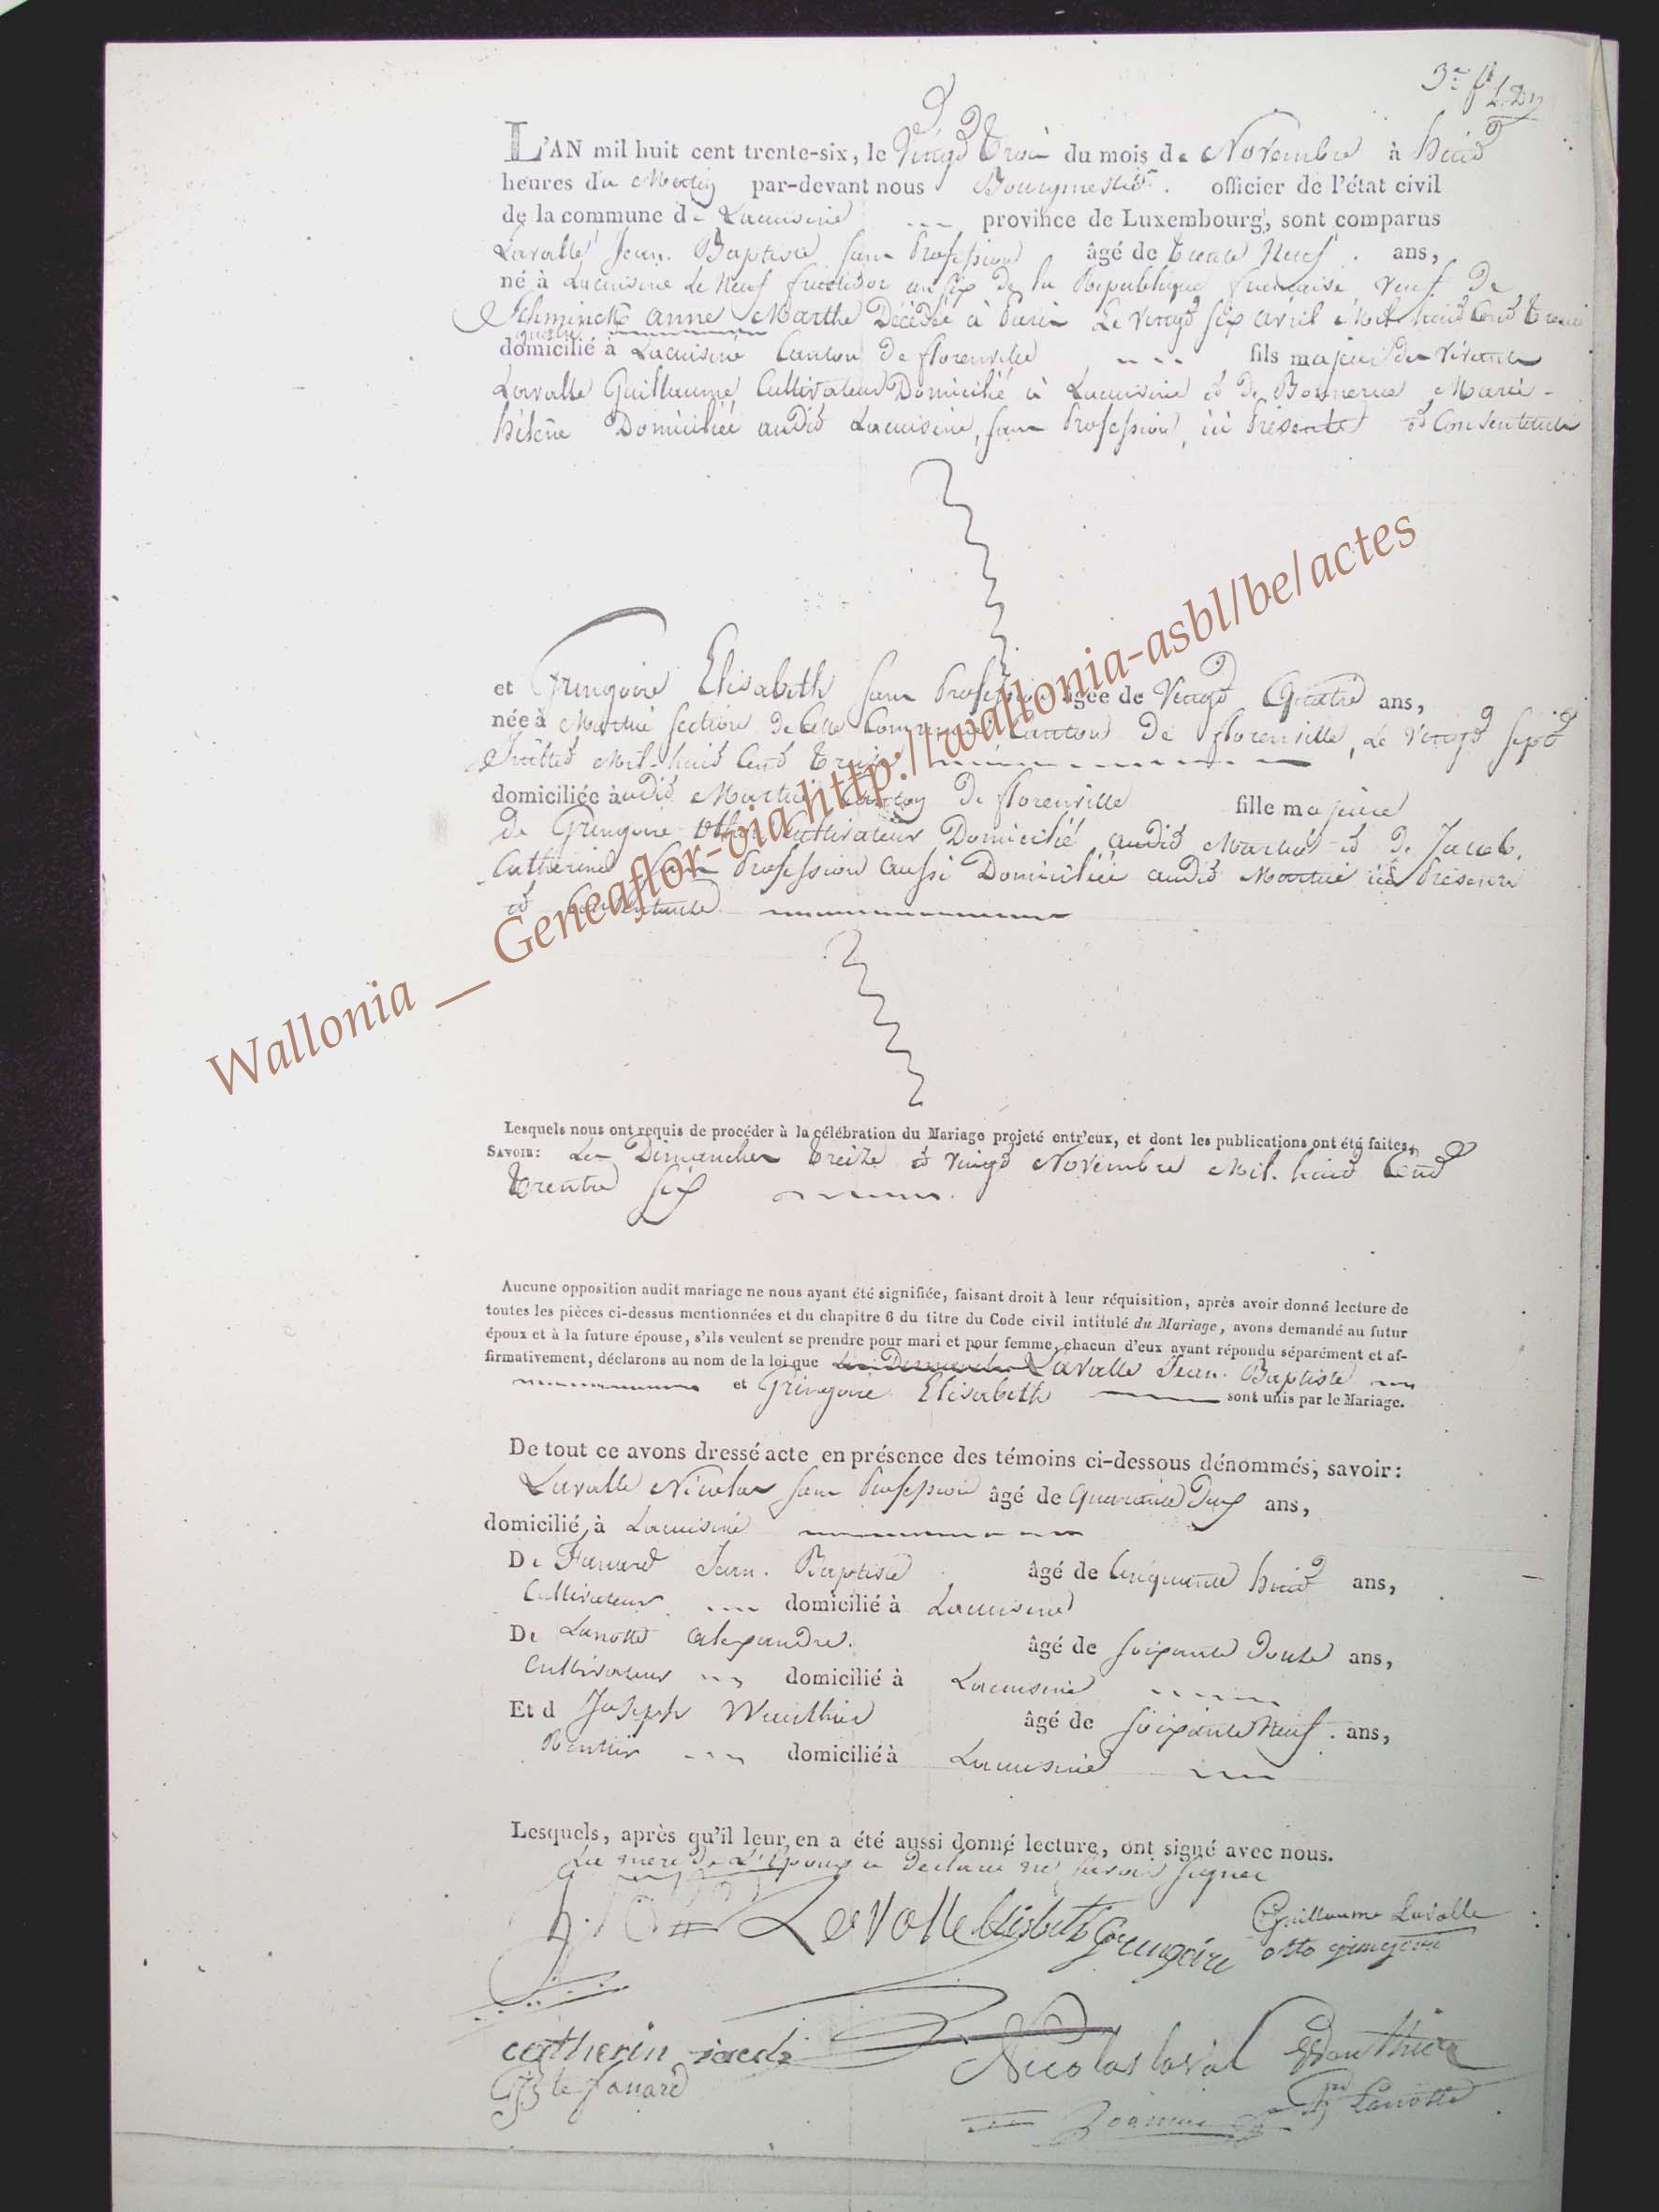 3e f
L'AN mil huit cent trente-six, le Vingt Trois du mois de Novembre à huit
heures du Matin par-devant nous Bourgmestre officier de l'état civil
de la commune de Lacuisine province de Luxembourg, sont comparus
Lavalle Jean Baptiste sans Profession âgé de trente Neuf ans,
né à Lacuisine Le Neuf fructidor an six De la République francaise veuf De
Schminck anne Marthe Décédée à Paris Le Vingt six avril Mil huit Cent trente
quatre
domicilié à Lacuisine Canton De florenville fils majeur des vivants
Lavalle Guillaume Cultivateur Domicilié à Lacuisine et De Bonnerue Marie
hélène Domiciliée audit Lacuisine, sans Profession, ici Présents et Consentents
et Gringoire Elisabeth sans Profession âgée de Vingt Quatre ans,
née à Martué section De Cette Commune Canton De florenville, Le Vingt sept
Juillet Mil-huit Cent treize
domiciliée audit Martué Canton De florenville fille majeure
De Gringoire Otho Cultivateur Domicilié audit Martué et De Jacob
Catherine sans Profession aussi Domiciliée audit Martué ici Présents
et Consentents
Lesquels nous ont requis de procéder à la célébration du Mariage projeté entr'eux, et dont les publications ont été faites,
SAVOIR: Les Dimanches treize et vingt Novembre Mil-huit Cent
trente six
Aucune opposition audit mariage ne nous ayant été signifiée, faisant droit à leur réquisition, après avoir donné lecture de
toutes les pièces ci-dessus mentionnées et du chapitre 6 du titre du Code civil intitulé du Mariage, avons demandé au futur
époux et à la future épouse, s'ils veulent se prendre pour mari et pour femme, chacun d'eux ayant répondu séparément et af-
firmativement, déclarons au nom de la loi que Les Dimanches Lavalle Jean Baptiste
et Gringoire Elisabeth sont unis par le Mariage.
De tout ce avons dressé acte en présence des témoins ci-dessous dénommés, savoir:
Lavalle Nicolas sans Profession âgé de Quarante Deux ans,
domicilié à Lacuisine
De Fanard Jean Baptiste âgé de Cinquante huit ans,
Cultivateur domicilié à Lacuisine
De Lanotte Alexandre âgé de soixante Douze ans,
Cultivateur domicilié à Lacuisine
Et d Joseph Wauthier âgé de soixante Neuf ans,
Rentier domicilié à Lacuisine
Lesquels, après qu'il leur en a été aussi donné lecture, ont signé avec nous.
La mere De L'Epoux a Declaré ne savoir signer
Lavalle Elisbeth Gringoire Guillaume Lavalle
otto gringoire
catherin jacob Nicolas laval Wauthier
Jb te fanard Lanotte
Wallonia __ Geneaflor-via http://wallonia-asbl/be/actes